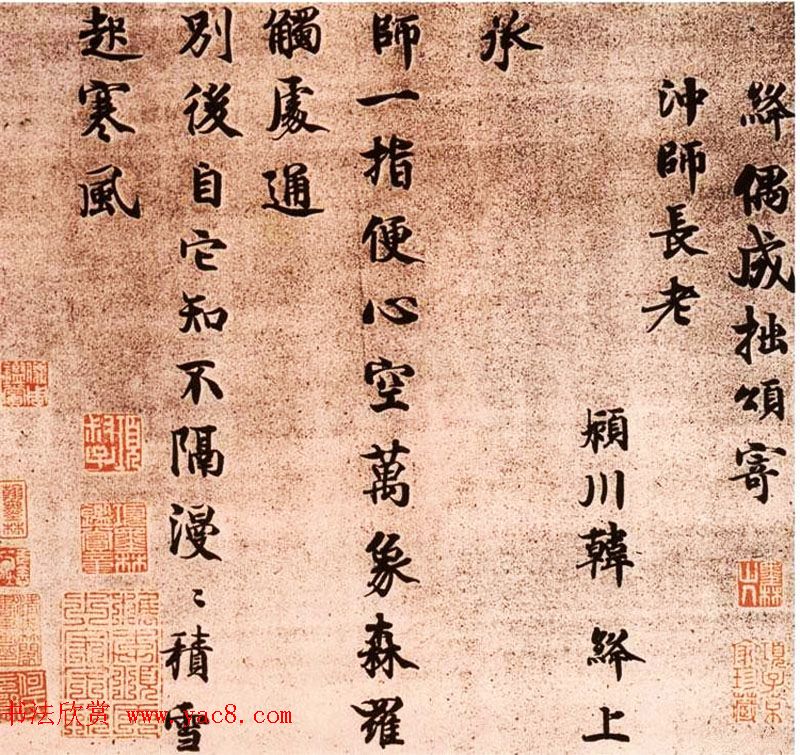 絳偶成拙頌寄
沖師長老
潁川韓絳上
承
師一指便心空萬象森羅
觸處通
別後自它知不隔漫〻積雪
趂寒風
墨林山人
項子京家珍藏
书法欣赏 www.yac8.com